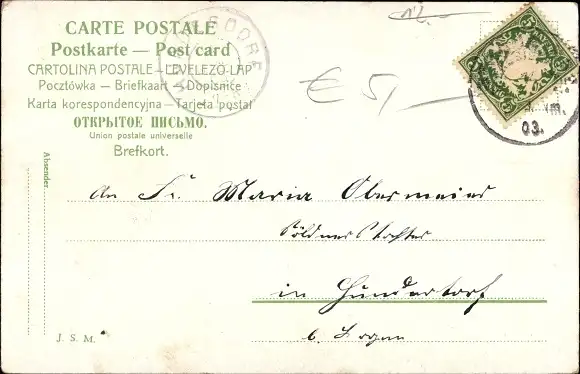 CARTE POSTALE
Postkarte — Post card
CARTOLINA POSTALE — LEVELEZŐ-LAP
Pocztówka — Briefkaart — Dopisnice
Karta korespondencyjna — Tarjeta postal
ОТКРЫТОЕ ПИСЬМО.
Union postale universelle
Brefkort.
Absender
€ 5,-
03.
An Fr. Maria Obermeier
Söldnerstochter
in Hunderdorf
b. Bogen
J. S. M.